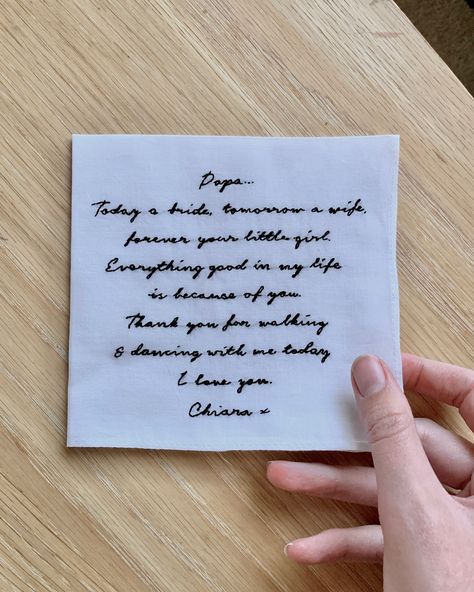 Papa...
Today a bride, tomorrow a wife,
forever your little girl.
Everything good in my life
is because of you.
Thank you for walking
& dancing with me today
I love you.
Chiara x